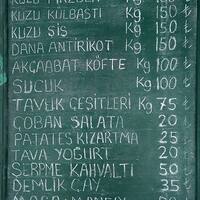 KUZU KÜLBASTI Kg 150 ₺
KUZU ŞİŞ Kg 150 ₺
DANA ANTİRİKOT Kg 150 ₺
AKÇAABAT KÖFTE Kg 100 ₺
SUCUK Kg 100 ₺
TAVUK ÇEŞİTLERİ Kg 75 ₺
ÇOBAN SALATA 20 ₺
PATATES KIZARTMA 25 ₺
TAVA YOĞURT 20 ₺
SERPME KAHVALTI 50 ₺
DEMLİK ÇAY 35 ₺